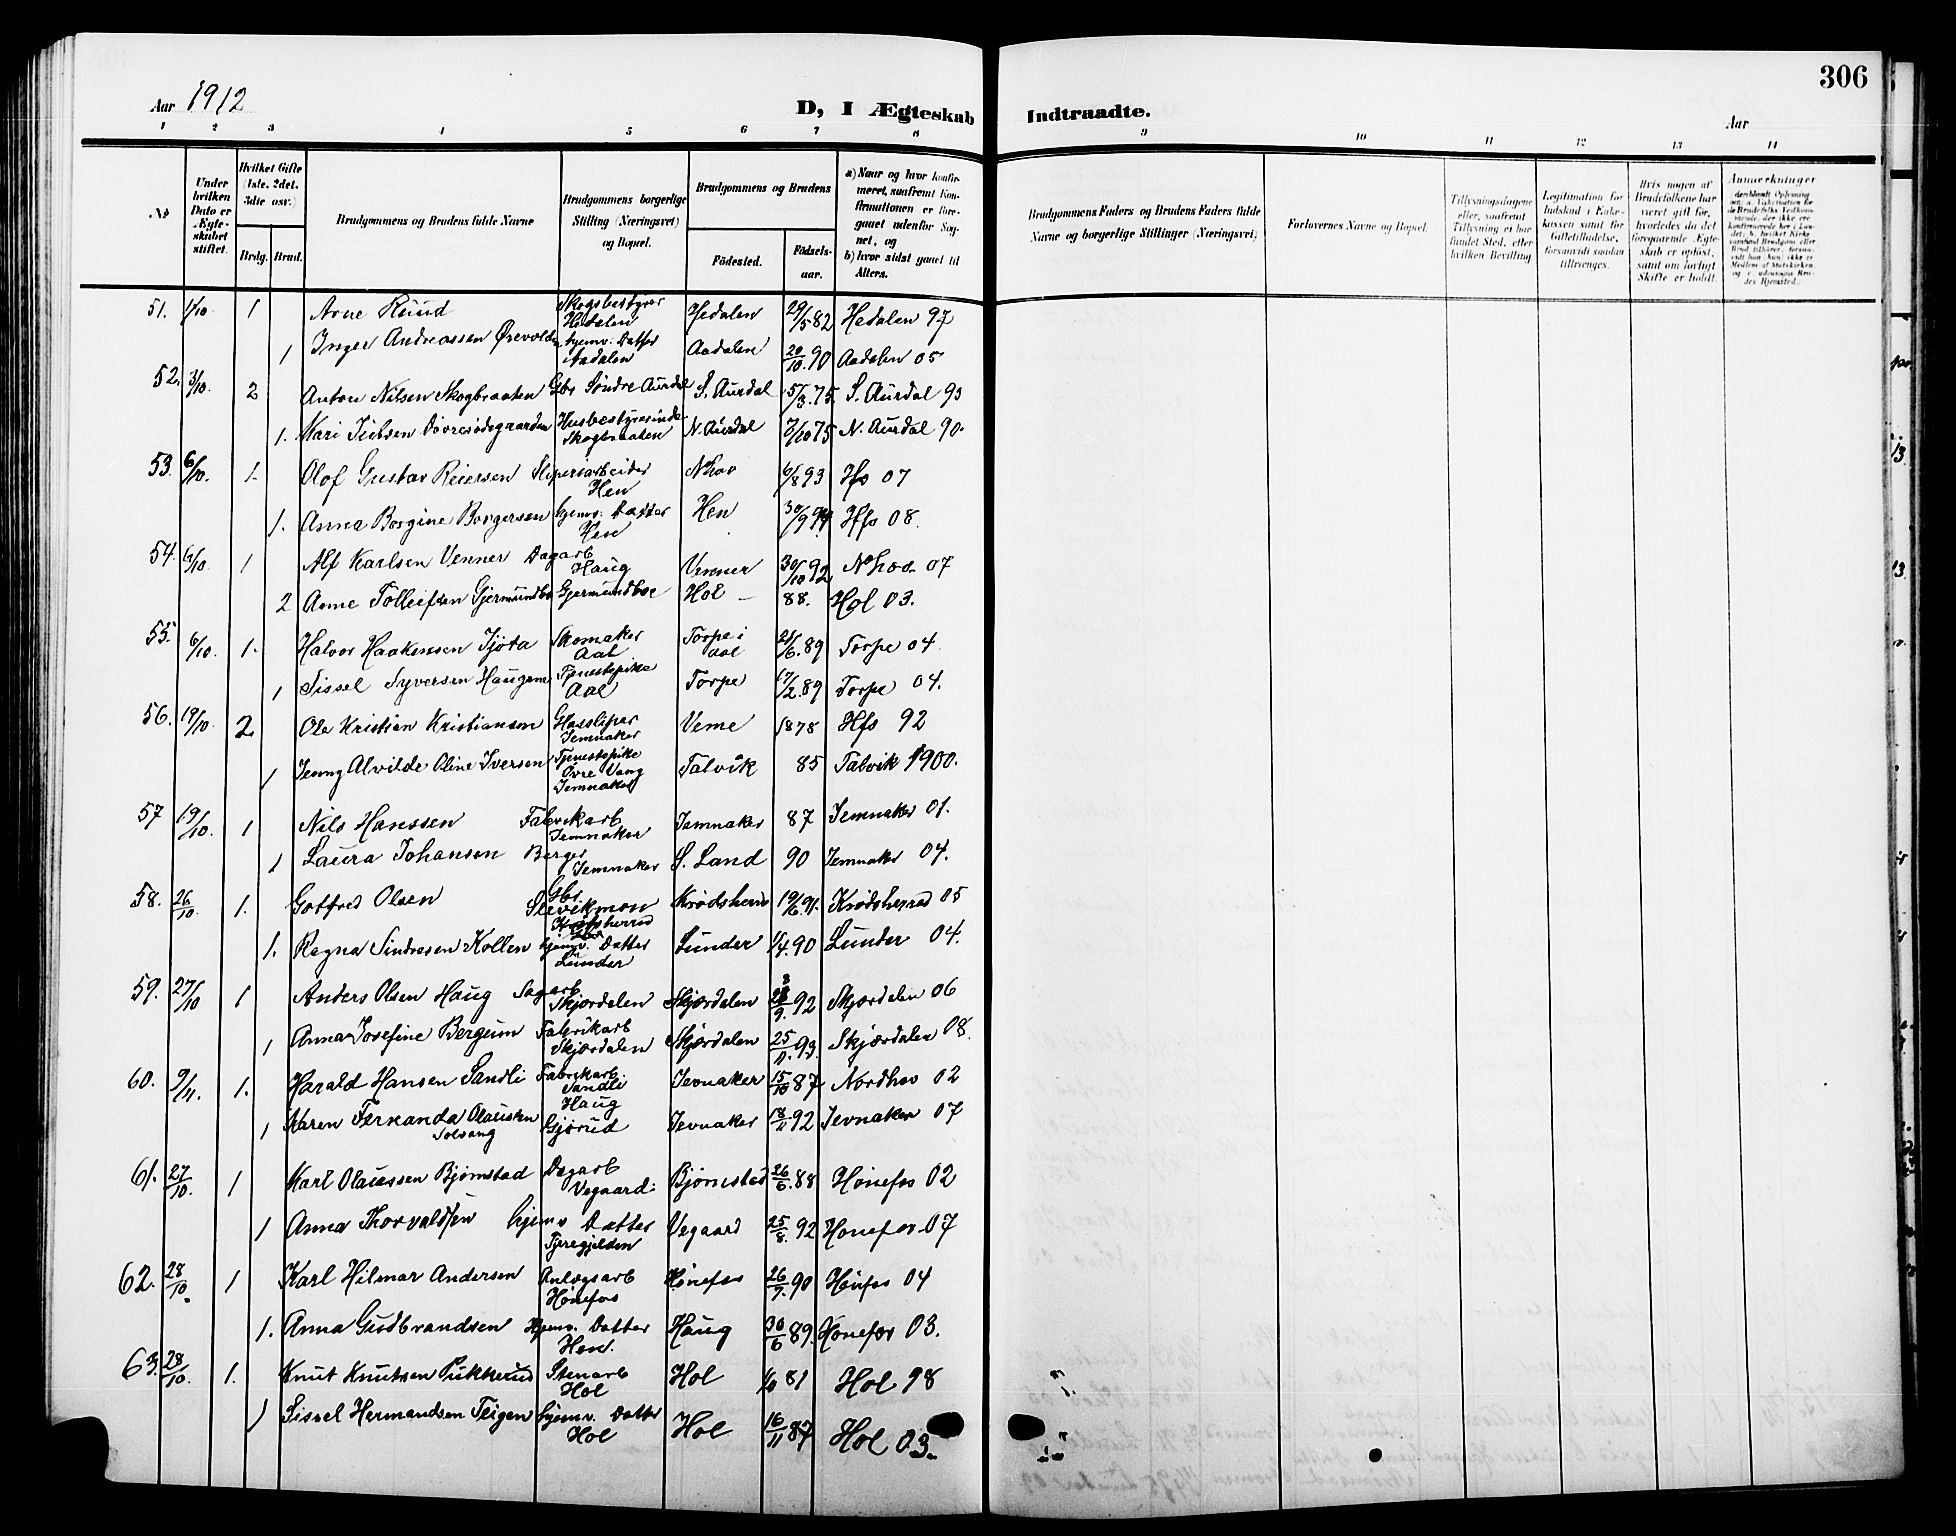 306
Aar 1912
D, I Ægteskab Indtraadte.
Aar
1 2 3 4 5 6 7 8 9 10 11 12 13 14
No
Under hvilken Dato er Ægteskabet stiftet
Hvilket Gifte 1ste, 2det, 3die osv.)
Brdg. Brud.
Brudgommens og Brudens fulde Navne
Brudgommens borgerlige Stilling (Næringsvei) og Bopæl.
Brudgommens og Brudens
Fødested.
Fødselsaar.
a) Naar og hvor konfirmeret, saafremt Konfirmationen er foregaaet udenfor Sognet, og
b) hvor sidst gaaet til Alters.
Brudgommens Faders og Brudens Faders fulde Navne og borgerlige Stillinger (Næringsvei)
Forlovernes Navne og Bopæl.
Tillysningsdagene eller, saafremt Tillysning ei har fundet Sted, efter hvilken Bevilling
Legitimation for Indskud i Enkekassen samt for Giftetilladelse, forsaavidt saadan tiltrænges.
Hvis nogen af Brudefolkene har været gift før, hvorledes da det foregaaende Ægteskab er opløst, samt om lovligt Skifte er holdt.
Anmærkninger
51. 1/10 1 Arne Ruud Skogsbestyrer Hedalen Hedalen 29/5 82 Hedalen 97
1 Inger Andreassen hjemv. Datter Aadalen Aadalen 20/10 90 Aadalen 05
52. 3/10 2 Anton Nilsen Skogbraaten Gbr Søndre Aurdal S. Aurdal 15/3 75. S. Aurdal 90
1. Mari Husbestyrerinde Skogbraaten N. Aurdal 7/10 75 N. Aurdal 90.
53. 6/10. 1. Olof Gustav Reiersen Sliperiarbeider Hen Nhov 6/8 93 Hfs 07
1. Anna Borgine Borgersen hjemv. Datter Hen Hen 30/9 94 Hfs 08.
54. 6/10 1 Alf Karlsen Venner Dagarb Haug Venner 30/10 92 Nhov 07
2 Anne Tolleifsen Gjermundbo Gjermundboe Hol 88. Hol 03.
55. 6/10. 1. Halvor Haakensen Skomaker Aal Torpe i Aal 21/6. 89 Torpe 04.
1 Sissel Syversen Haugene Tjenestepike Aal Torpe 17/2. 89 Torpe 04.
56. 19/10 2 Ole Kristian Kristiansen Glassliper Jevnaker Veme 1878 Hfs 92
1 Jenny Alvilde Oline Iversen Tjenestepike Øvre Vang Jevnaker Talvik 85 Talvik 1900.
57 19/10. 1 Nils Hanssen Fabrikarb Jevnaker Jevnaker 87 Jevnaker 01.
1 Laura Johansen Berger Jevnaker S. Land 90 Jevnaker 04.
58. 26/10. 1. Gotfred Olsen Gbr. Krødsherred 19/6. 91. Krødsherred 05
1. Ragna Sindresen Kollen hjemv. Datter Lunder Lunder 1/4. 90 Lunder 04.
59. 27/10 1 Anders Olsen Haug Sagarb Skjærdalen Skjærdalen 92 Skjærdalen 06
1 Anna Josefine Bergum Fabrikarb Skjærdalen Skjærdalen 25/11. 93. Skjærdalen 08.
60. 9/11. 1. Harald Hansen Sandli Fabrikarb. Sandli Haug Jevnaker 15/10 87 Nordhov 02
1 Karen Fernanda Olausen Solvang Gjørud Jevnaker 18/11 92 Jevnaker 07
61. 27/10. 1 Karl Olaussen Bjørnstad Dagarb Vegaard Bjørnstad 26/6. 88 Hønefos 02
1 Anna Thorvaldsen hjemv Datter Tjæregjelden Vegaard 25/8. 92 Hønefos 07
62. 28/10. 1 Karl Hilmar Andersen Anlægsarb Hønefos Hønefos 26/9. 90 Hønefos 04
1. Anna Gudbrandsen Hjemv. Datter Hen. Haug 30/6 89. Hønefos 03.
63. 28/10. 1. Knut Knutsen Pukkerud Stenarb Hol Hol 81 Hol 98
1 Sissel Hermandsen Teigen hjemv. Datter Hol Hol 16/11 87 Hol 03.